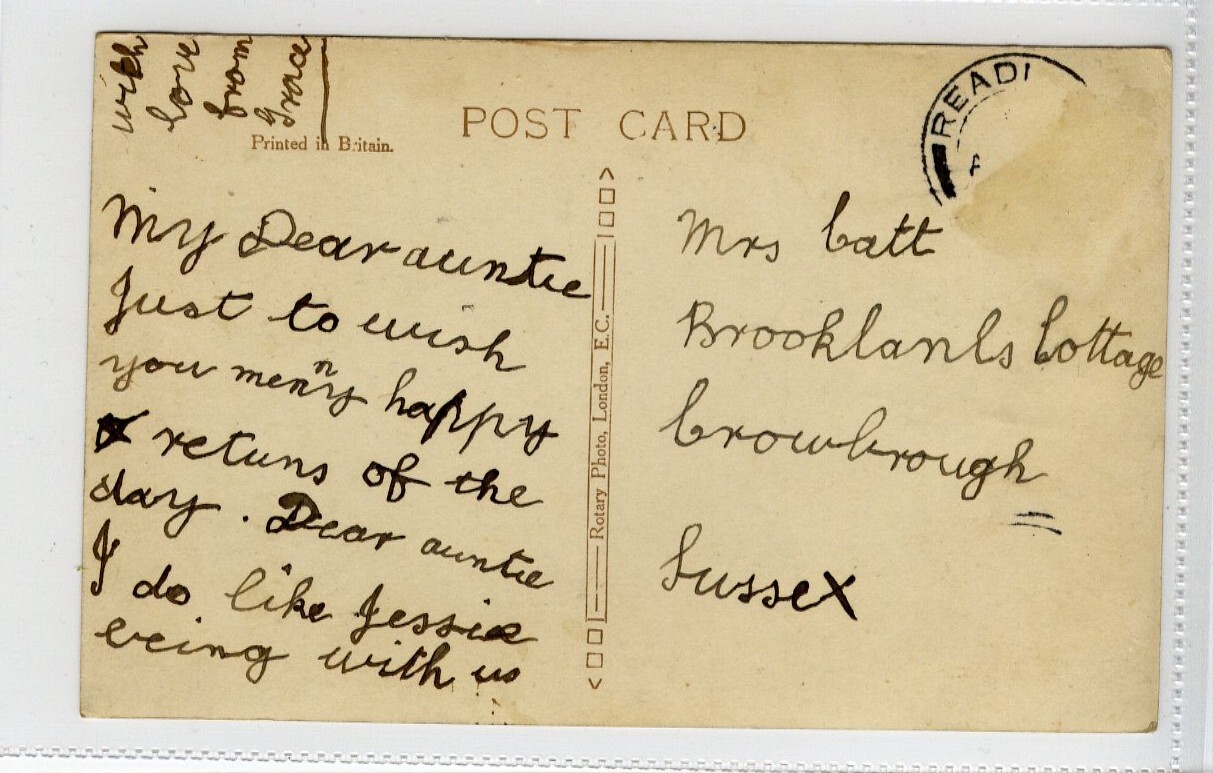 with
love
from
Grace
Printed in Britain.
POST CARD
READI
My Dear auntie
Just to wish
you menny happy
returns of the
day. Dear auntie
I do like Jessie
being with us
Rotary Photo, London, E.C.
Mrs Catt
Brooklands Cottage
Crowbrough
Sussex